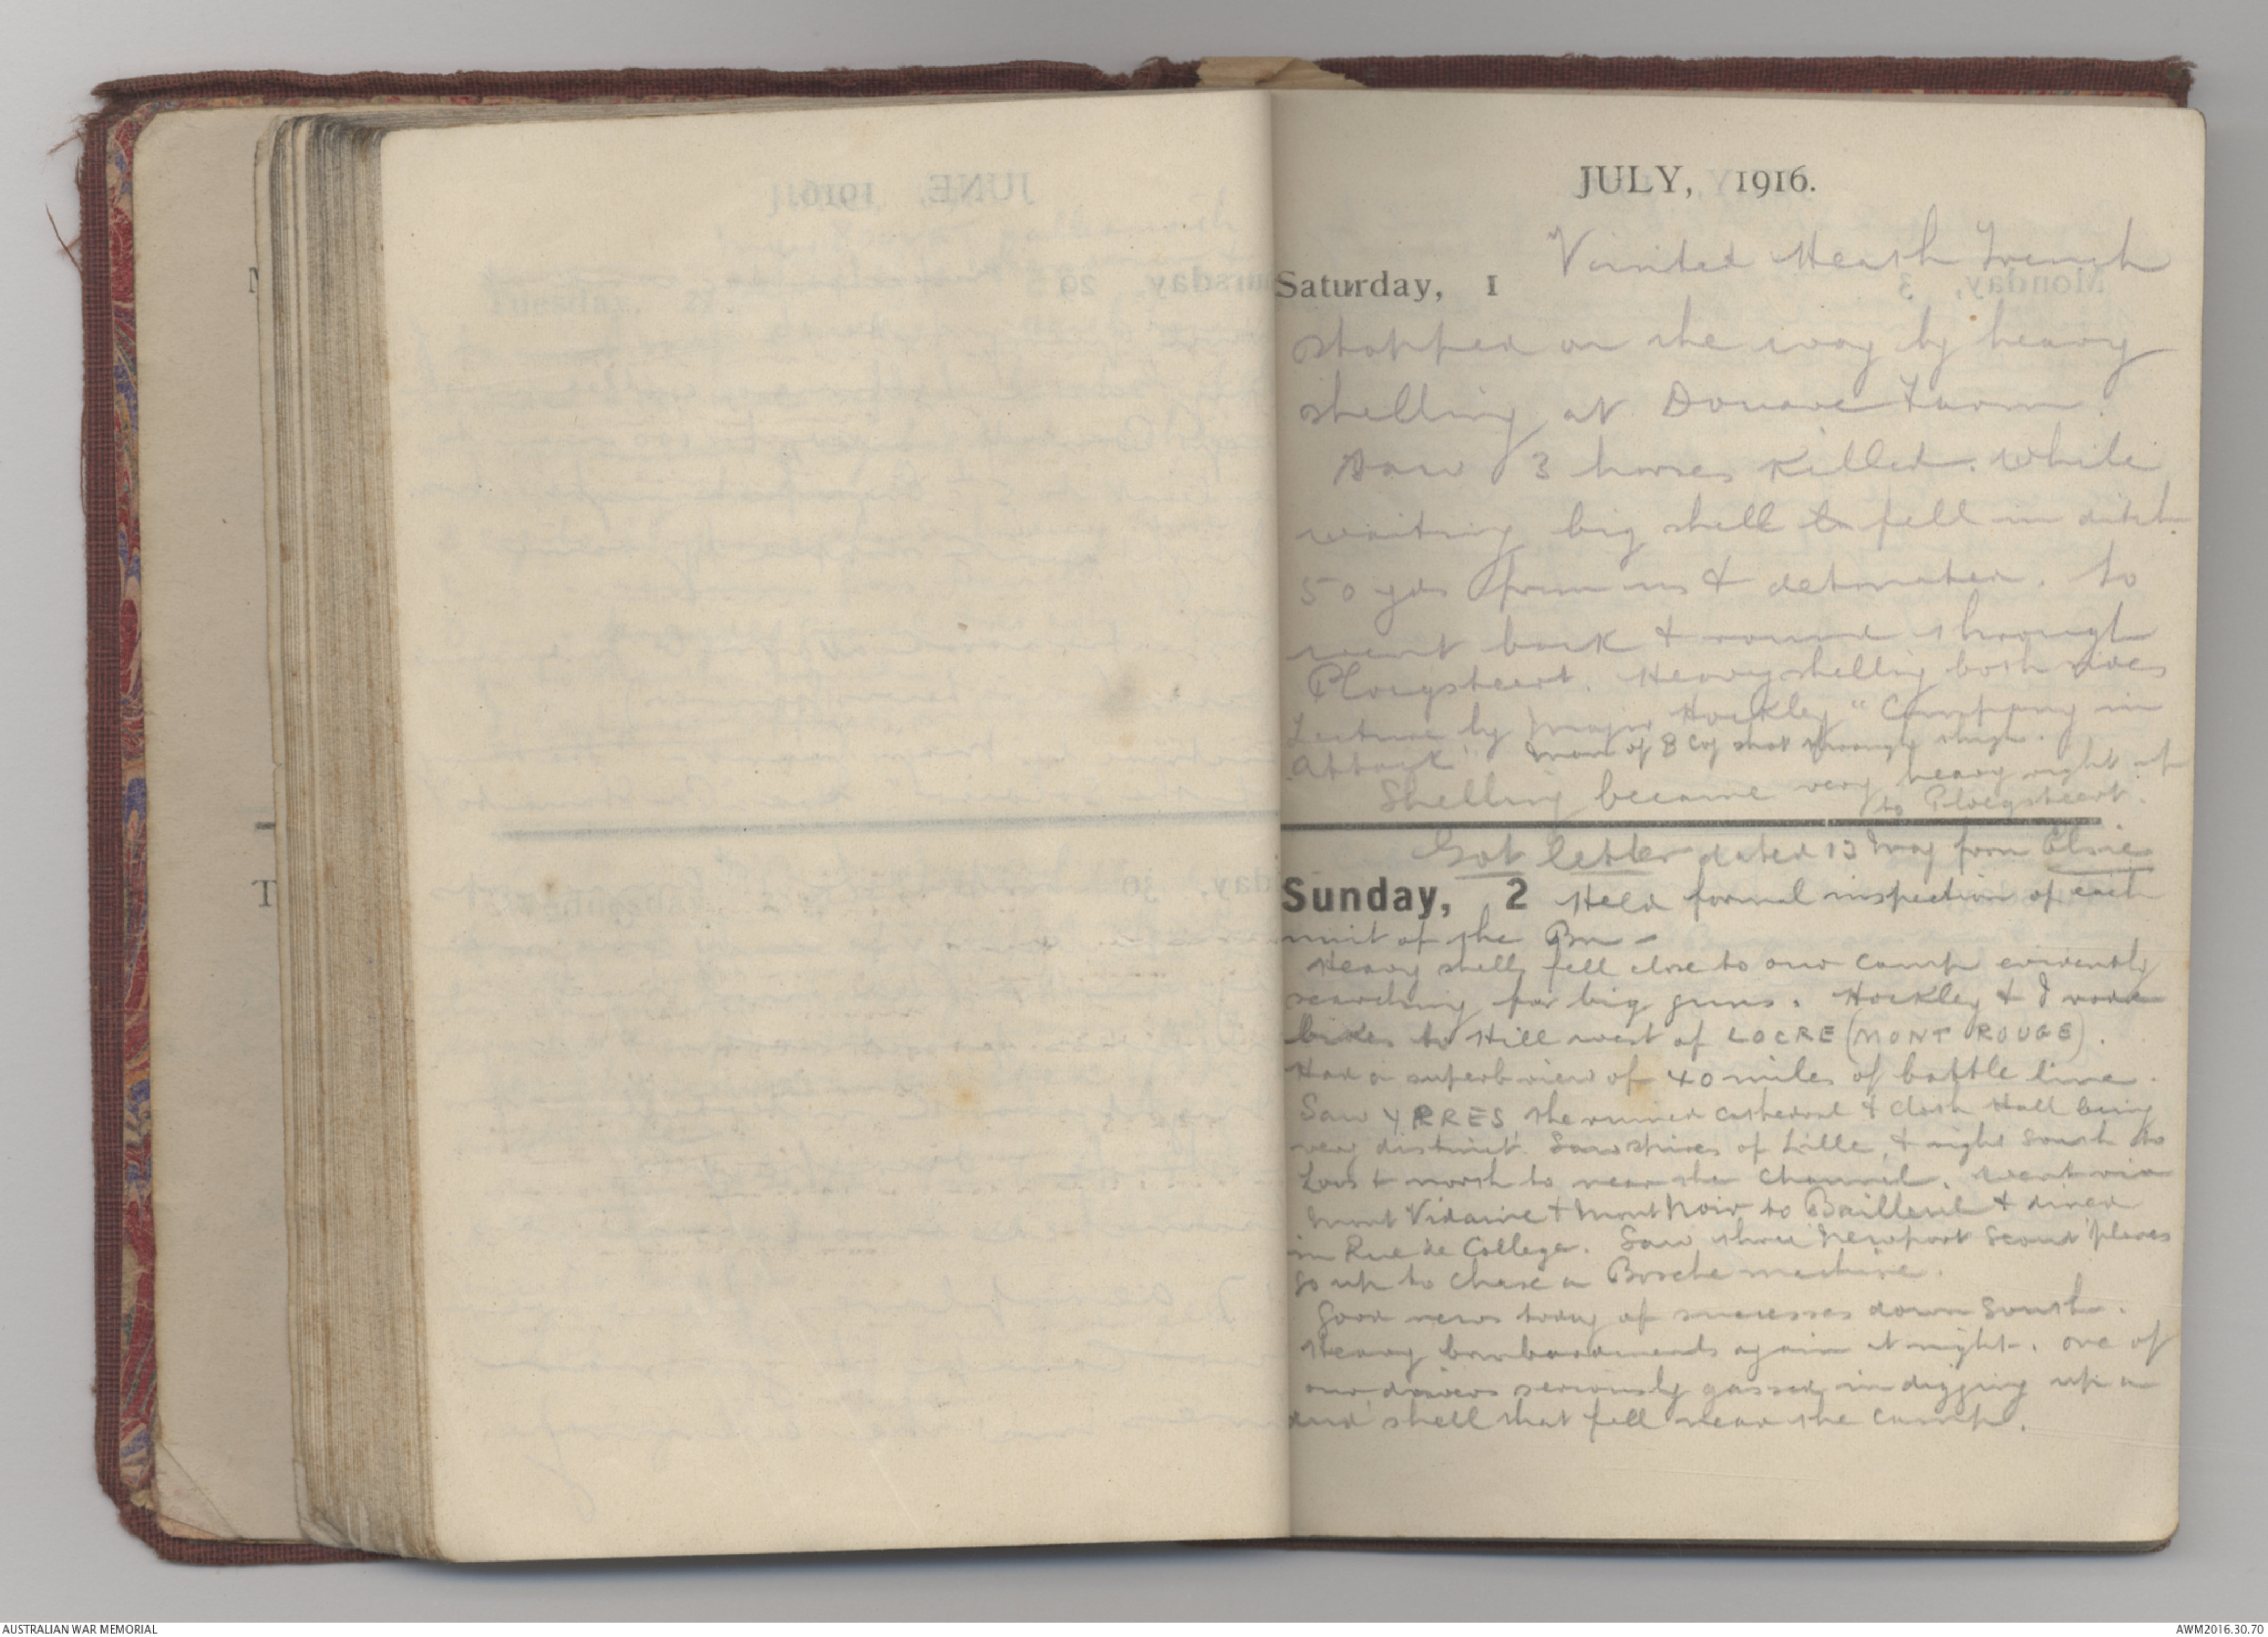 JULY, 1916.
Visited Heath Trench
Saturday, 1
stopped on the way by heavy
shelling at Douave Farm.
Saw 3 horses killed. While
waiting big shell fell in ditch
50 yds from us & detonated. So
went back & round through
Ploegsteert. Heavy shelling both sides
Lecture by Major Hockley "Company in
Attack" Man of B Coy shot through thigh.
Shelling became very heavy right up
to Ploegsteert.
Got letter dated 13 May from Elsie
Sunday, 2 Held formal inspection of each
unit of the Bn -
Heavy shells fell close to our camp evidently
searching for big guns. Hockley & I rode
bikes to Hill west of LOCRE (MONT ROUGE).
Had a superb view of 40 miles of battle line.
Saw YPRES, the ruined cathedral & Cloth Hall being
very distinct. Saw spires of Lille, & right South to
Loos & north to near the Channel. Went via
Mont Vidaine & Mont Noir to Bailleul & dined
in Rue de College. Saw three Newport Scout planes
go up to chase a Bosche machine.
Good news today of successes down South.
Heavy bombardments again at night. One of
our drivers seriously gassed in digging up a
dud shell that fell near the camp.
AUSTRALIAN WAR MEMORIAL
AWM2016.30.70